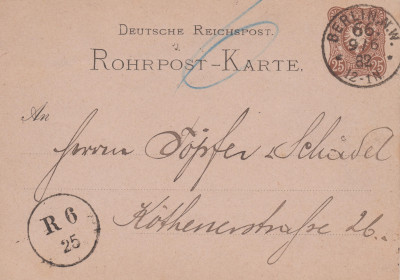 DEUTSCHE REICHSPOST.
ROHRPOST-KARTE.
BERLIN.N.W.
66.
9/6
82
12-1N
25 25
An
Herrn Töpfer Schädel
Köthenerstraße 26.
R 6
25